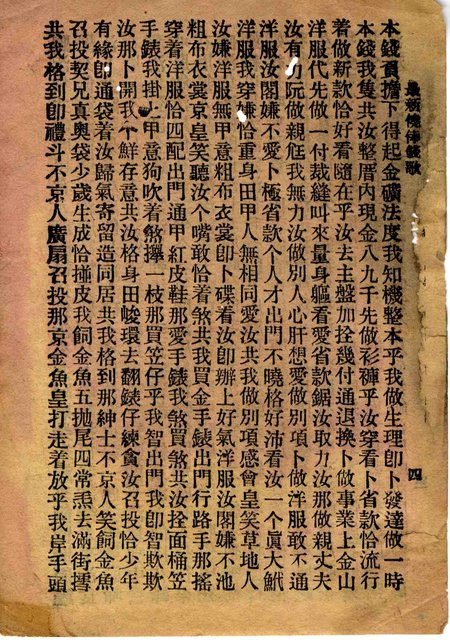 最新僥倖錢歌
四
本錢頁擔下得起金礦法度我知機整本乎我做生理卽卜發達做一時
本錢我隻共汝整厝內現金八九千先做衫褲乎汝穿看卜省款恰流行
着做新款恰好看隨在乎汝去主盤加拴幾付通退換卜做事業上金山
洋服代先做一付裁縫叫來量身軀看愛省款鋸汝取力汝那做親丈夫
汝有功阮做親尫我無力汝做別人心肝想愛做別項卜做洋服敢不通
洋服汝閣嫌不愛卜極省款个人才出門不曉格好沛看汝一个眞大魷
洋服我穿嫌恰重身田甲人無相同愛汝共我做別項感會皇笑草地人
汝嫌洋服無甲意粗布衣裳卽卜碟看汝卽辦上好氣洋服汝閣嫌不池
粗布衣裳京皇笑聽汝个嘴敢恰着煞共我買金手錶出門行路手那搖
穿着洋服恰四配出門通甲紅皮鞋那愛手錶我煞買煞共汝拴面桶笠
手錶我掛上甲意狗吠着煞擇一枝那買笠仔乎我智出門我卽智欺欺
汝那卜開我 鮮存意共汝格身田峻環去翻錶仔練貪汝召投恰少年
有緣卽通袋着汝歸氣寄留造同居共我格到那紳士不京人笑飼金魚
召投契兄真奧袋少歲生成恰掽皮我飼金魚五抛尾四常炁去滿街𨑨
共我格到卽禮斗不京人廣扇召投那京金魚皇打走着放乎我岸手頭